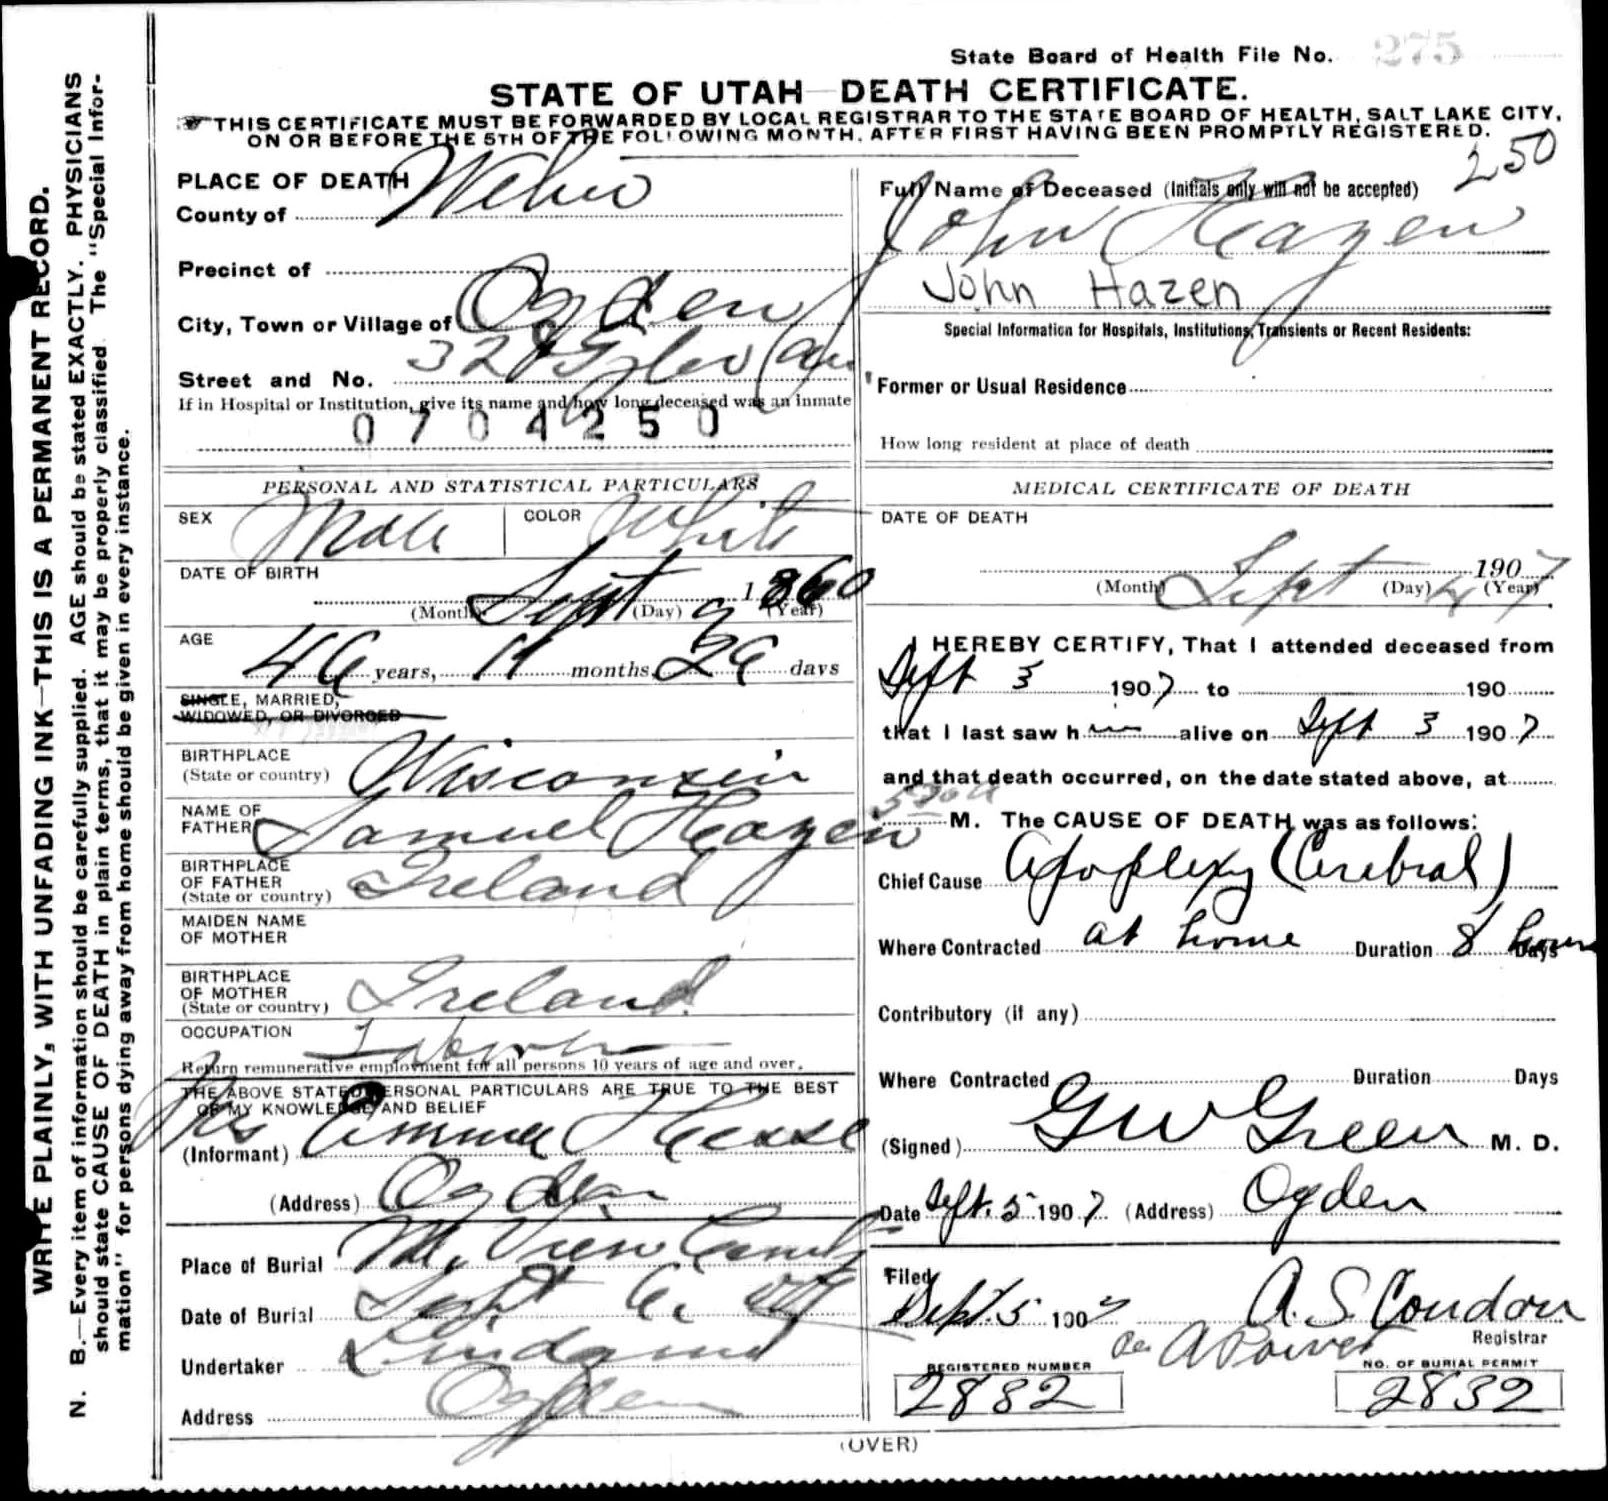 State Board of Health File No. 275
STATE OF UTAH—DEATH CERTIFICATE.
THIS CERTIFICATE MUST BE FORWARDED BY LOCAL REGISTRAR TO THE STATE BOARD OF HEALTH, SALT LAKE CITY,
ON OR BEFORE THE 5TH OF THE FOLLOWING MONTH, AFTER FIRST HAVING BEEN PROMPTLY REGISTERED.
250
WRITE PLAINLY, WITH UNFADING INK—THIS IS A PERMANENT RECORD.
N. B.—Every item of information should be carefully supplied. AGE should be stated EXACTLY. PHYSICIANS
should state CAUSE OF DEATH in plain terms, that it may be properly classified. The "Special Infor-
mation" for persons dying away from home should be given in every instance.
PLACE OF DEATH
County of Weber
Precinct of
City, Town or Village of Ogden
Street and No. 328
If in Hospital or Institution, give its name and how long deceased was an inmate
0704250
PERSONAL AND STATISTICAL PARTICULARS
SEX Male COLOR White
DATE OF BIRTH
Sept 9 1860
(Month) (Day) (Year)
AGE
46 years, 11 months, 26 days
SINGLE, MARRIED,
WIDOWED, OR DIVORCED
BIRTHPLACE
(State or country) Wisconsin
NAME OF
FATHER Samuel Hazen
BIRTHPLACE
OF FATHER
(State or country) Ireland
MAIDEN NAME
OF MOTHER
BIRTHPLACE
OF MOTHER
(State or country) Ireland
OCCUPATION Laborer
Return remunerative employment for all persons 10 years of age and over.
THE ABOVE STATED PERSONAL PARTICULARS ARE TRUE TO THE BEST
OF MY KNOWLEDGE AND BELIEF
(Informant) Mrs Emma
(Address) Ogden
Place of Burial Mt. View
Date of Burial Sept 6.
Undertaker Lindquist
Address Ogden
Full Name of Deceased (Initials only will not be accepted)
John Hazen
John Hazen
Special Information for Hospitals, Institutions, Transients or Recent Residents:
Former or Usual Residence
How long resident at place of death
MEDICAL CERTIFICATE OF DEATH
DATE OF DEATH
Sept 4 1907
(Month) (Day) (Year)
I HEREBY CERTIFY, That I attended deceased from
Sept 3 1907 to 190
that I last saw him alive on Sept 3 1907
and that death occurred, on the date stated above, at
M. The CAUSE OF DEATH was as follows:
Chief Cause Apoplexy (Cerebral)
Where Contracted at home Duration 8 hours Days
Contributory (if any)
Where Contracted Duration Days
(Signed) GW Green M. D.
Date Sept. 5 1907 (Address) Ogden
Filed
Sept. 5 1907 A. S. Condon
Registrar
REGISTERED NUMBER NO. OF BURIAL PERMIT
2882 2832
(OVER)